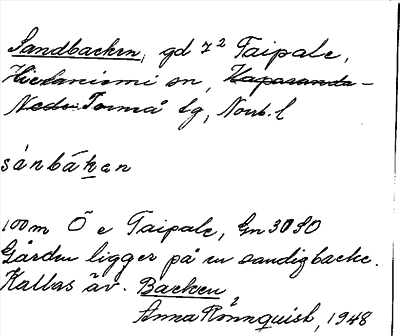 Sandbacken, gd 7² Taipale,
Hietaniemi sn, Haparanda-
Nedertorneå tg, Norrb. l
sánbákan
100m Ö e Taipale, Gn 30 SO
Gården ligger på en sandig backe.
Kallas äv. Backen
Anna Rönnquist, 1948